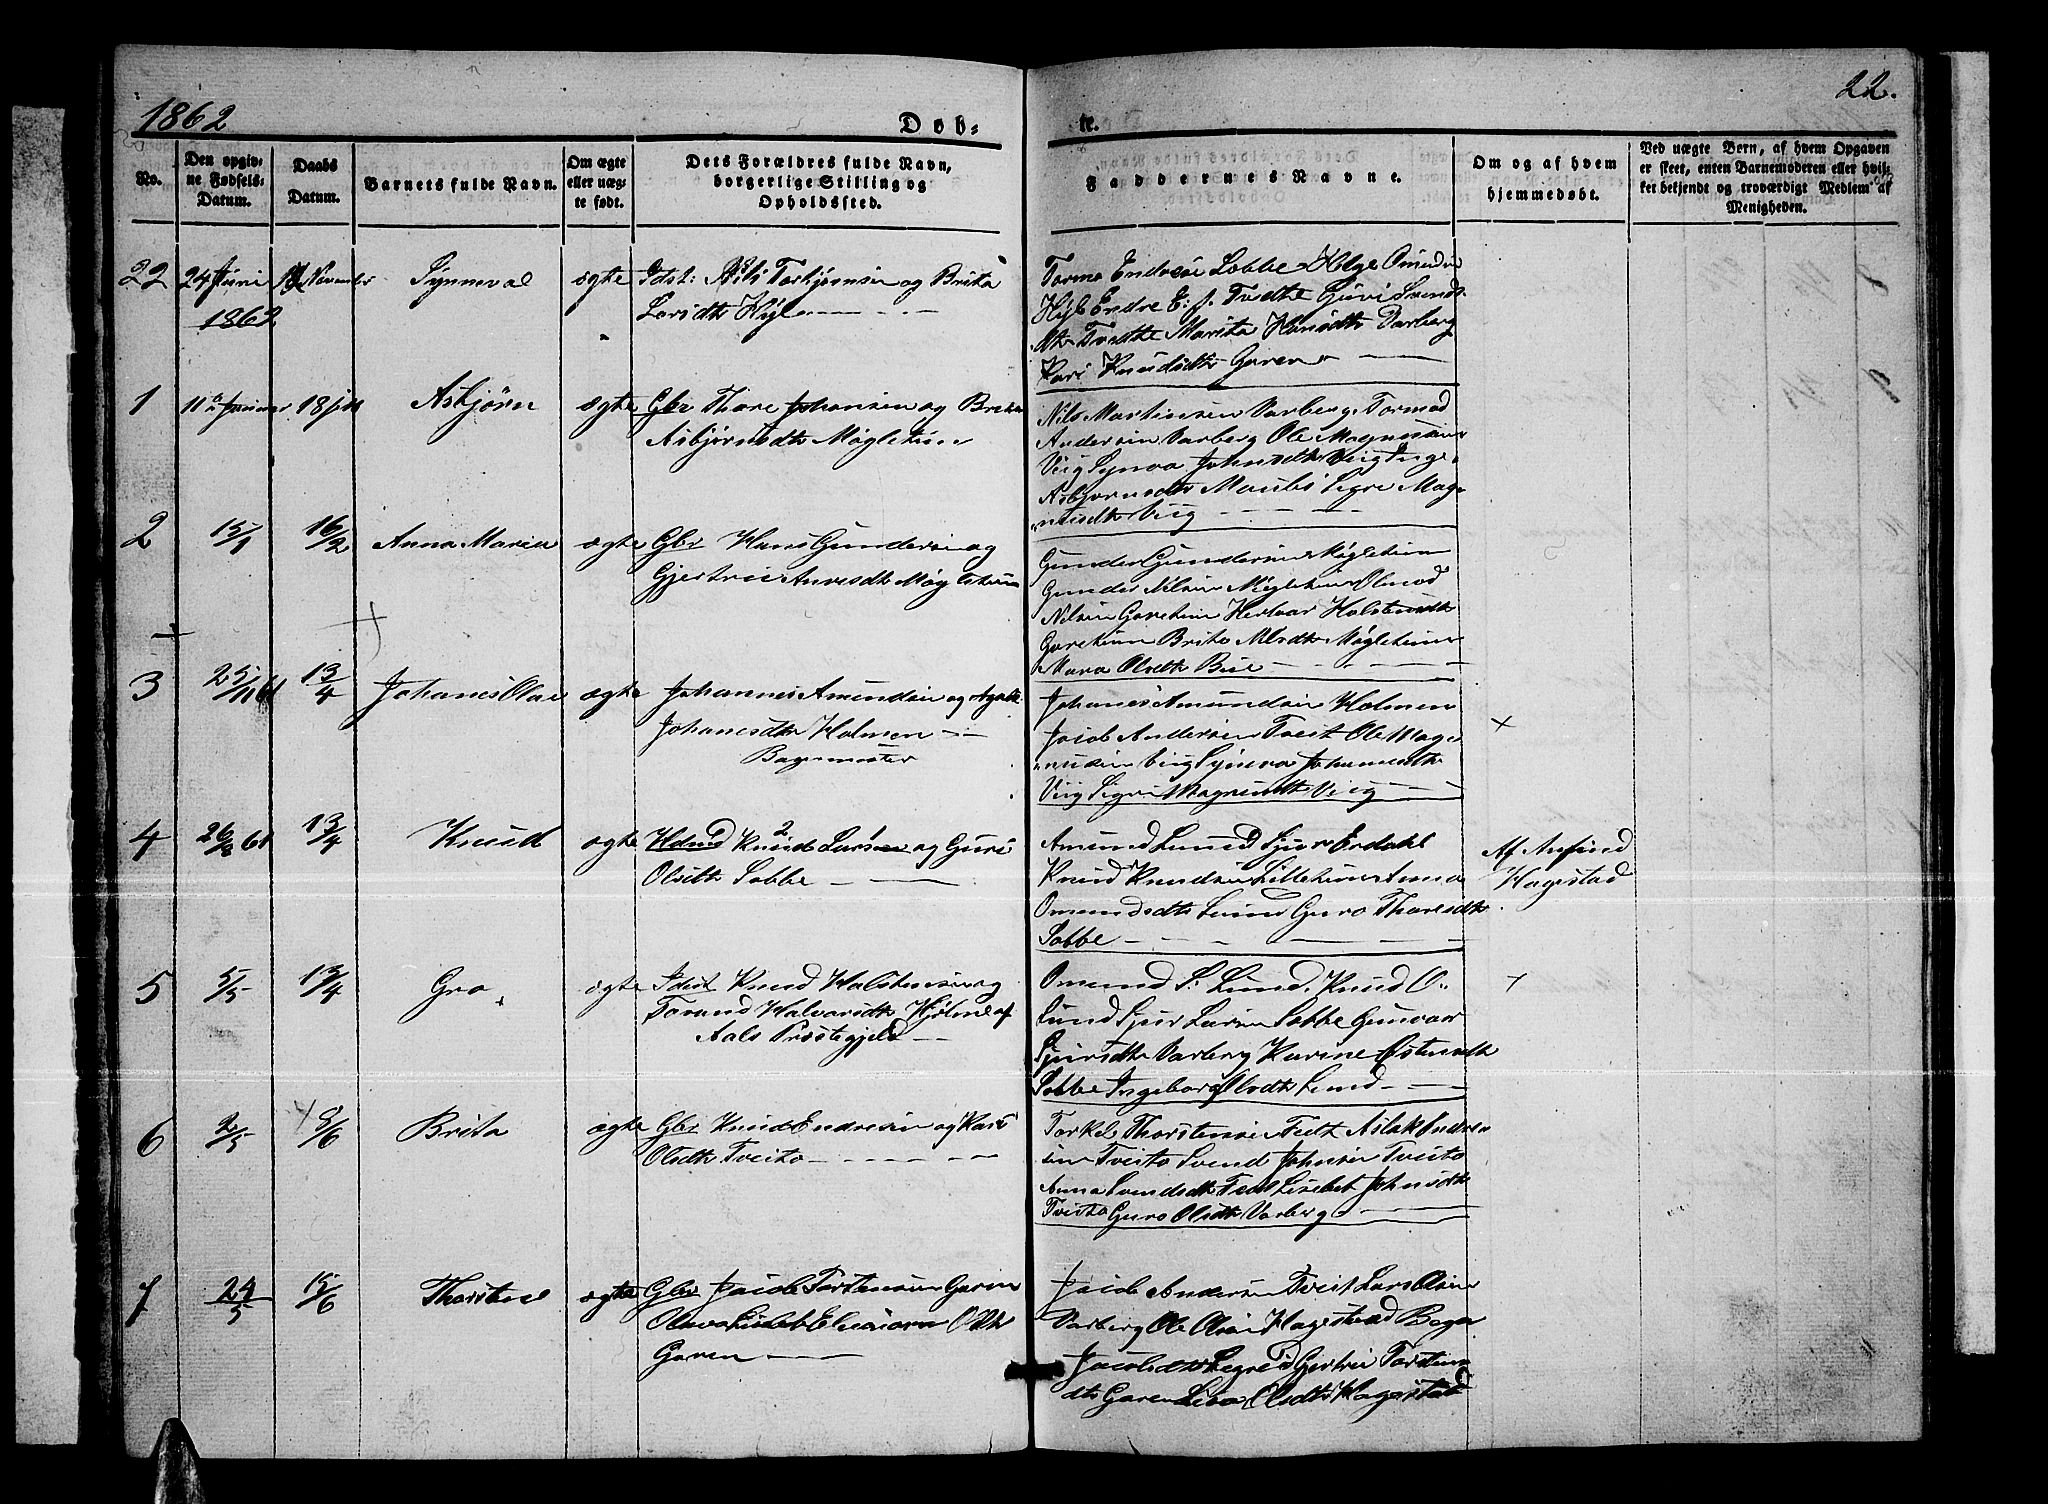 1862
Døb-
te.
22.
No.
Den opgiv-
ne Fødsels-
Datum.
Daabs
Datum.
Barnets fulde Navn.
Om ægte
eller uæg-
te født.
Dets Forældres fulde Navn,
borgerlige Stilling og
Opholdssted.
Faddernes Navne.
Om og af hvem
hjemmedøbt.
Ved uægte Børn, af hvem Opgaven
er skeet, enten Barnemoderen eller hvil-
ket bekjendt og troværdigt Medlem af
Menigheden.
22
24 Juni
1862
November
Synneval
ægte
Gdst: Nils Torkjørnsen og Brita
Larsdtr Hyl
Endresen Lobbe Helge
Hyl Endre E: s. Tvedte Guri Svends
dtr Tvedte Marita Hansdtr Varberg
Kari Knudsdtr Garen
1
11 Januar
Asbjørn
ægte
Gbr Thore Johansen og Brita
Asbjørnsdtr Mögletun
Nils Martinsen Varberg Tormod
Andersen Varberg Ole Magnussen
Viig Synva Johnsdtr Viig Inge
Asbjørnsdtr Sigri Mag-
nusdtr Viig
2
15/1
16/2
Anna Maria
ægte
Gbr Hans Gundersen og
Gjertrue Mögletun
Gunder Gundersen Mögletun
Gunder Nilsen Mögletun Olmod
Nilsen Garetun Herborr Halstensdtr
Garetun Brita Nilsdtr Mögletun
Olsdtr Bue
3
25/11 61
13/4
Johanes Olai
ægte
Johannes Amundsen og Agate
Johanesdtr Holmen
Bagermester
Johanes Amundsen Holmen
Jacob Andersen Tveit Ole Mag-
nusen Viig Synva Johannesdtr
Viig Sigri Magnusdtr Viig
4
26/8 61
13/4
Knud
ægte
Hdmd Knud Larsen og Guri
Olsdtr Lobbe
Amund Lund Sjur Erdahl
Knud Knudsen Lilletun Anna
Omundsdtr Lund Guro Thoresdtr
Lobbe
Af Anfind
Hagestad
5
5/3
13/4
Gro
ægte
Idst Knud Halstensen og
Torand Halvorsdtr Hjølmo af
Aals Præstegjeld
Omund S. Lund, Knud O.
Lund Sjur Larsen Lobbe Gunvor
Sjursdtr Varberg Karine Østensdtr
Lobbe Ingeborg Olsdtr Lund
6
2/5
8/6
Brita
ægte
Gbr Knud Endresen og Kari
Olsdtr Tveito
Torkel Thorstensen Tveit Aslak Endre
sen Tveito Svend Johnsen Tveito
Anna Svendsdtr Tveit Lisebet Johnsdtr
Tveito Guro Olsdtr Varberg
7
24/5
15/6
Thorsten
ægte
Gbr Jacob Torstensen Garen
Olsdtr
Garen
Jacob Andersen Tveit Lars Olsen
Varberg Ole Olsen Hagestad
Jacobsdtr Legreid Gjertrue Torstens
dtr Garen Olsdtr Hagestad